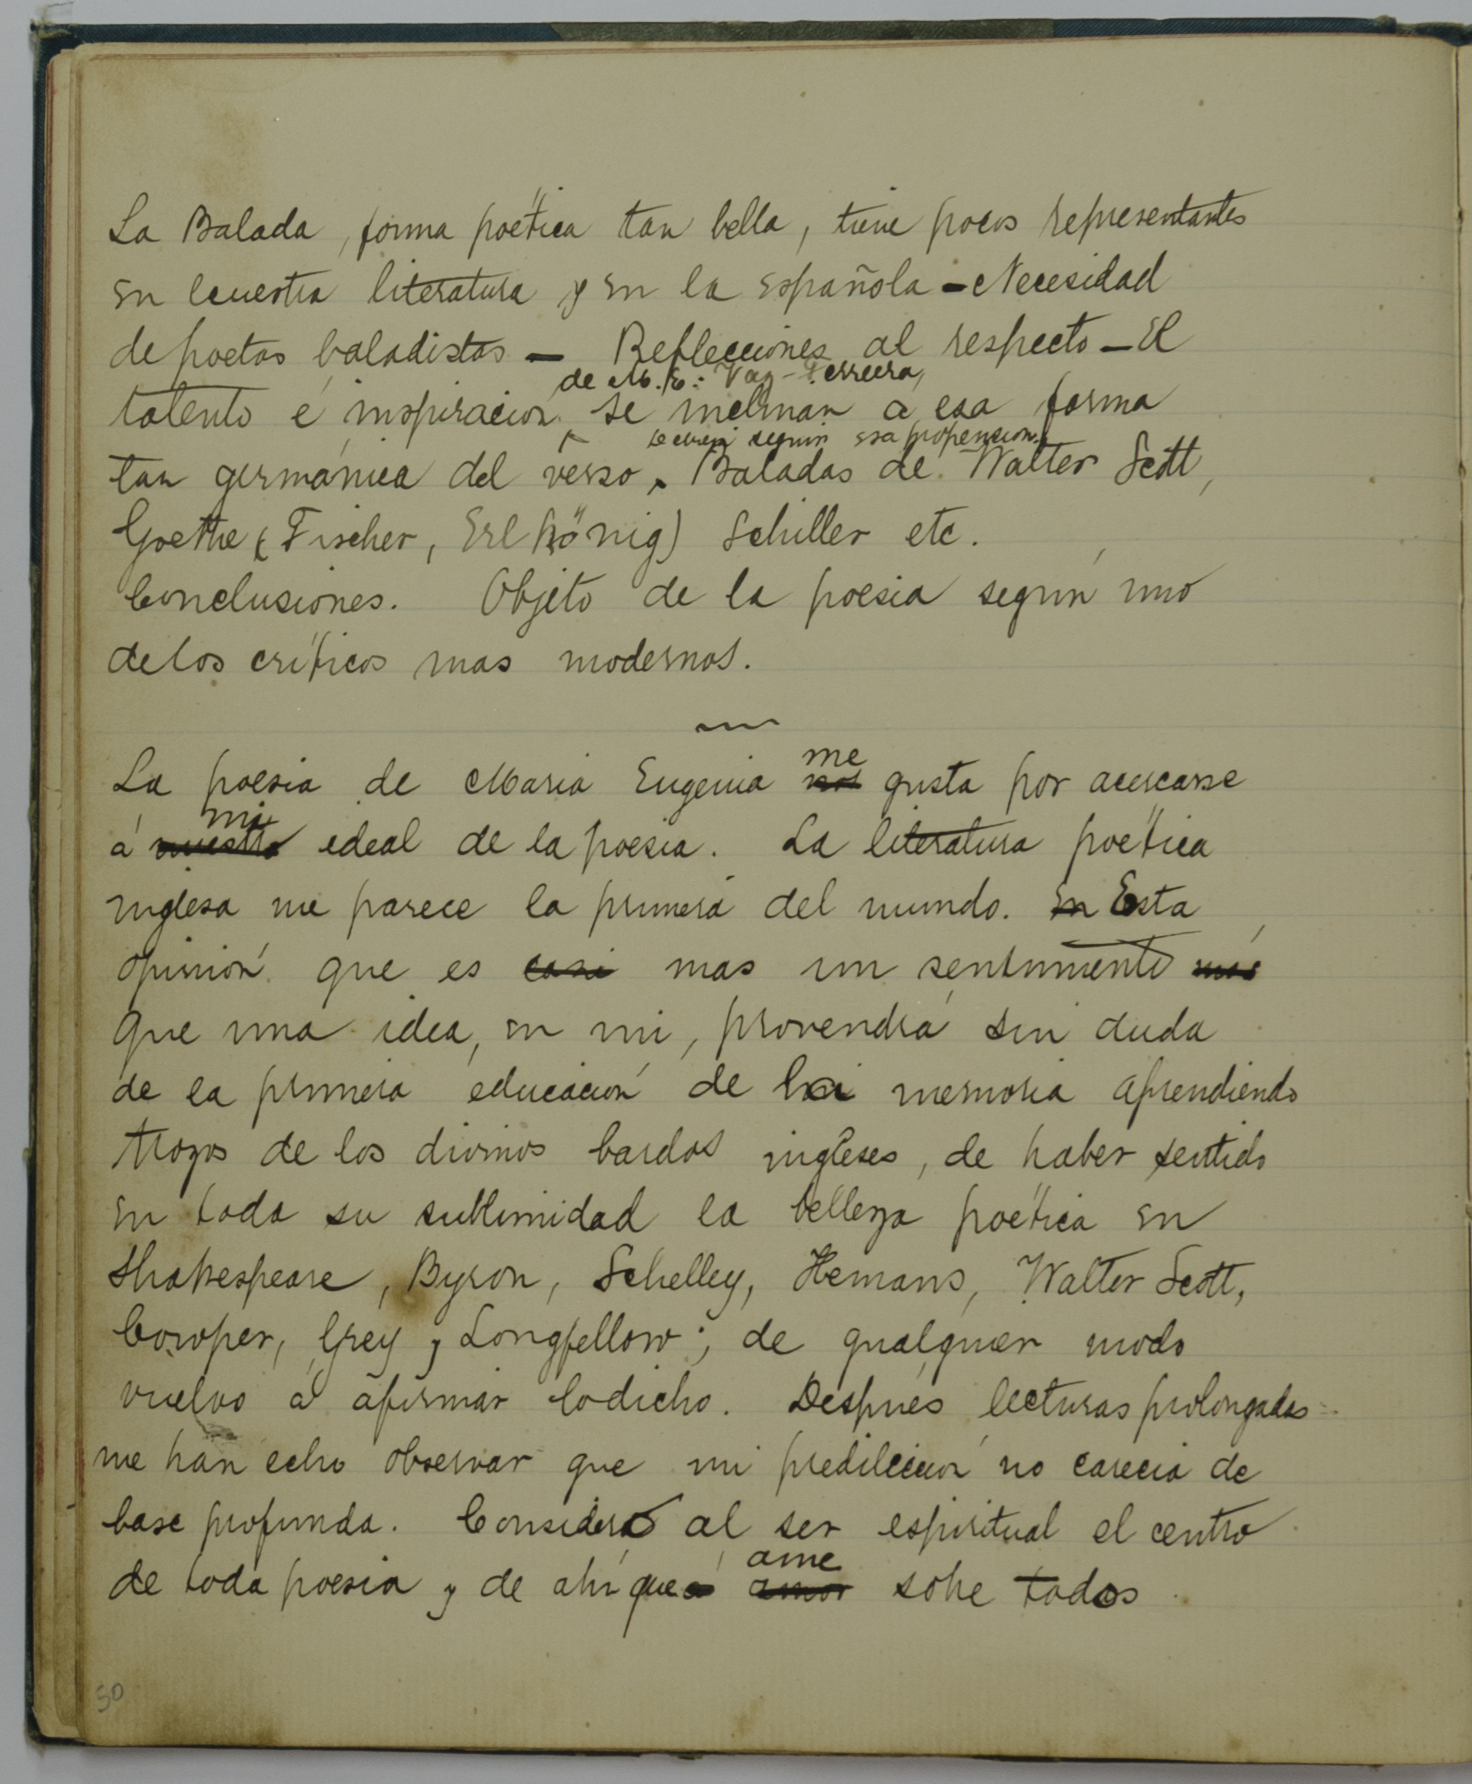 La Balada, forma poética tan bella, tiene pocos representantes
en nuestra literatura y en la española – Necesidad
de poetas baladistas – Reflecciones al respecto – El
de M. E. Vaz – Ferreira,
talento é inspiración se inclinan á esa forma
según esa propension.
tan germánica del verso. Baladas de Walter Scott,
Goethe (Fischer, Erlkönig) Schiller etc.
Conclusiones. Objeto de la poesia según uno
de los críticos mas modernos.
me
La poesia de Maria Eugenia nos gusta por acercarse
mi
á nuestro ideal de la poesia. La literatura poética
inglesa me parece la primera del mundo. En Esta
opinión que es casi mas un sentimiento mas
que una idea, en mi, provendrá sin duda
de la primera educación de la memoria aprendiendo
trozos de los divinos bardos ingleses, de haber sentido
en toda su sublimidad la belleza poética en
Shakespeare, Byron, Schelley, Hemans, Walter Scott,
Cowper, Grey y Longfellow; de qualquier modo
vuelvo á afirmar lo dicho. Después lecturas prolongadas
me han echo observar que mi predilección no carecia de
base profunda. Considero al ser espiritual el centro
ame
de toda poesia y de ahí que á amor sobre todos
50